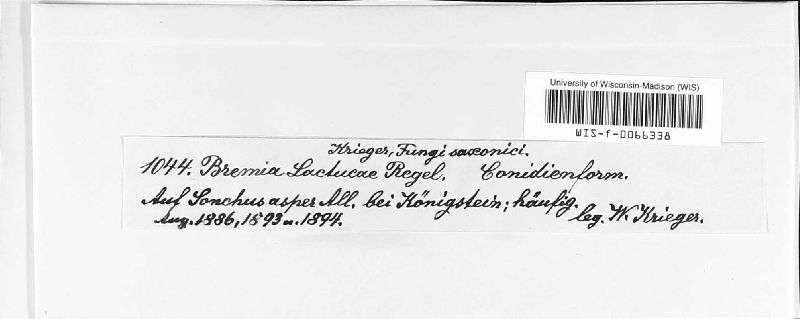 University of Wisconsin-Madison (WIS)
WIS-f-0066338
Krieger, Fungi saxonici.
1044. Bremia Lactucae Regel. Conidienform.
Auf Sonchus asper All. bei Königstein; häufig.
Aug. 1886, 1893 u. 1894. leg. W. Krieger.